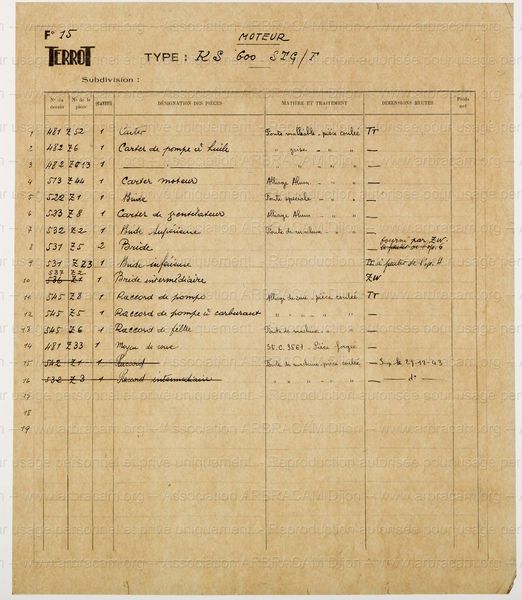 F° 15
MOTEUR
TERROT
TYPE : KS 600 STG/T
Subdivision :
N° du dessin N° de la pièce QUANTITÉ DÉSIGNATION DES PIÈCES MATIÈRE ET TRAITEMENT DIMENSIONS BRUTES Poids net
1 481 Z 52 1 Carter Fonte malléable - pièce coulée Tr
2 482 Z 6 1 Carter de pompe à huile " grise " " —
3 482 Z 13 1 " " " —
4 573 Z 44 1 Carter moteur Alliage Alum - " " —
5 522 Z 1 1 Bride Fonte spéciale - " " —
6 533 Z 8 1 Carter de ventilateur Alliage Alum - " " —
7 532 Z 2 1 Bride supérieure Fonte de " " —
8 531 Z 5 2 Bride fourni par ZW.
9 531 Z 23 1 Bride inférieure à partir de
537 Z 2
10 536 Z 1 1 Bride intermédiaire ZW
11 545 Z 8 1 Raccord de pompe Alliage de - pièce coulée Tr
12 545 Z 5 1 Raccord de pompe à carburant " " " " —
13 545 Z 6 1 Raccord de filtre Fonte de —
14 481 Z 33 1 Moyeu de roue St. C. 3561. Pièce forgée —
15 542 Z 1 1 Raccord Fonte de pièce coulée — Sup. le 29-12-43
16 532 Z 3 1 Raccord intermédiaire " " " " — d°
17
18
19
www.arbracam.org - Association ARBRACAM Dijon - Reproduction autorisée pour usage personnel et privé uniquement.